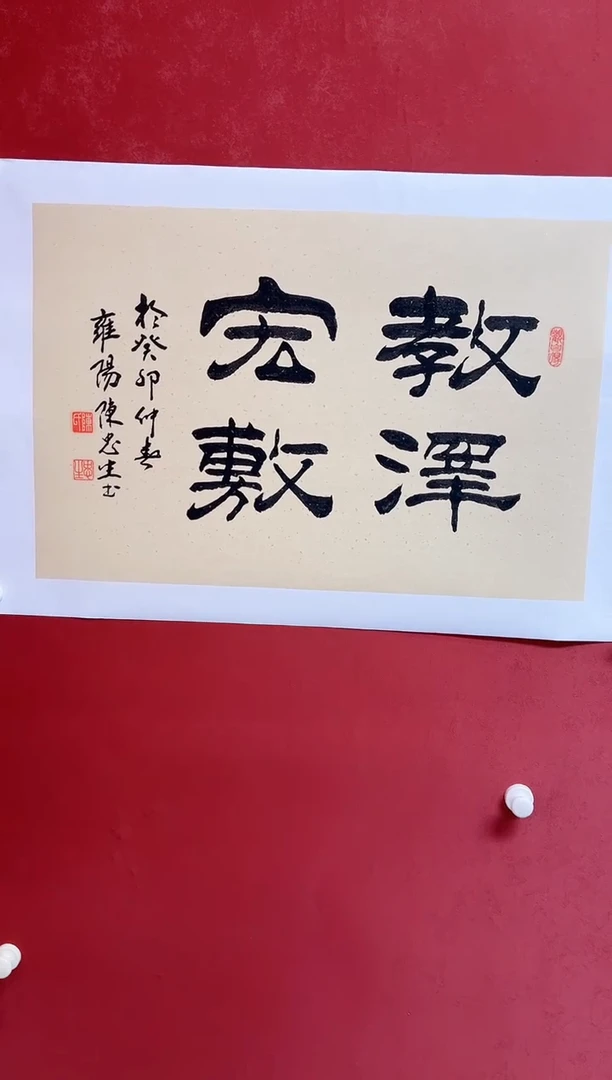 教澤
宏敷
於癸卯仲春
雍陽陳忠生書